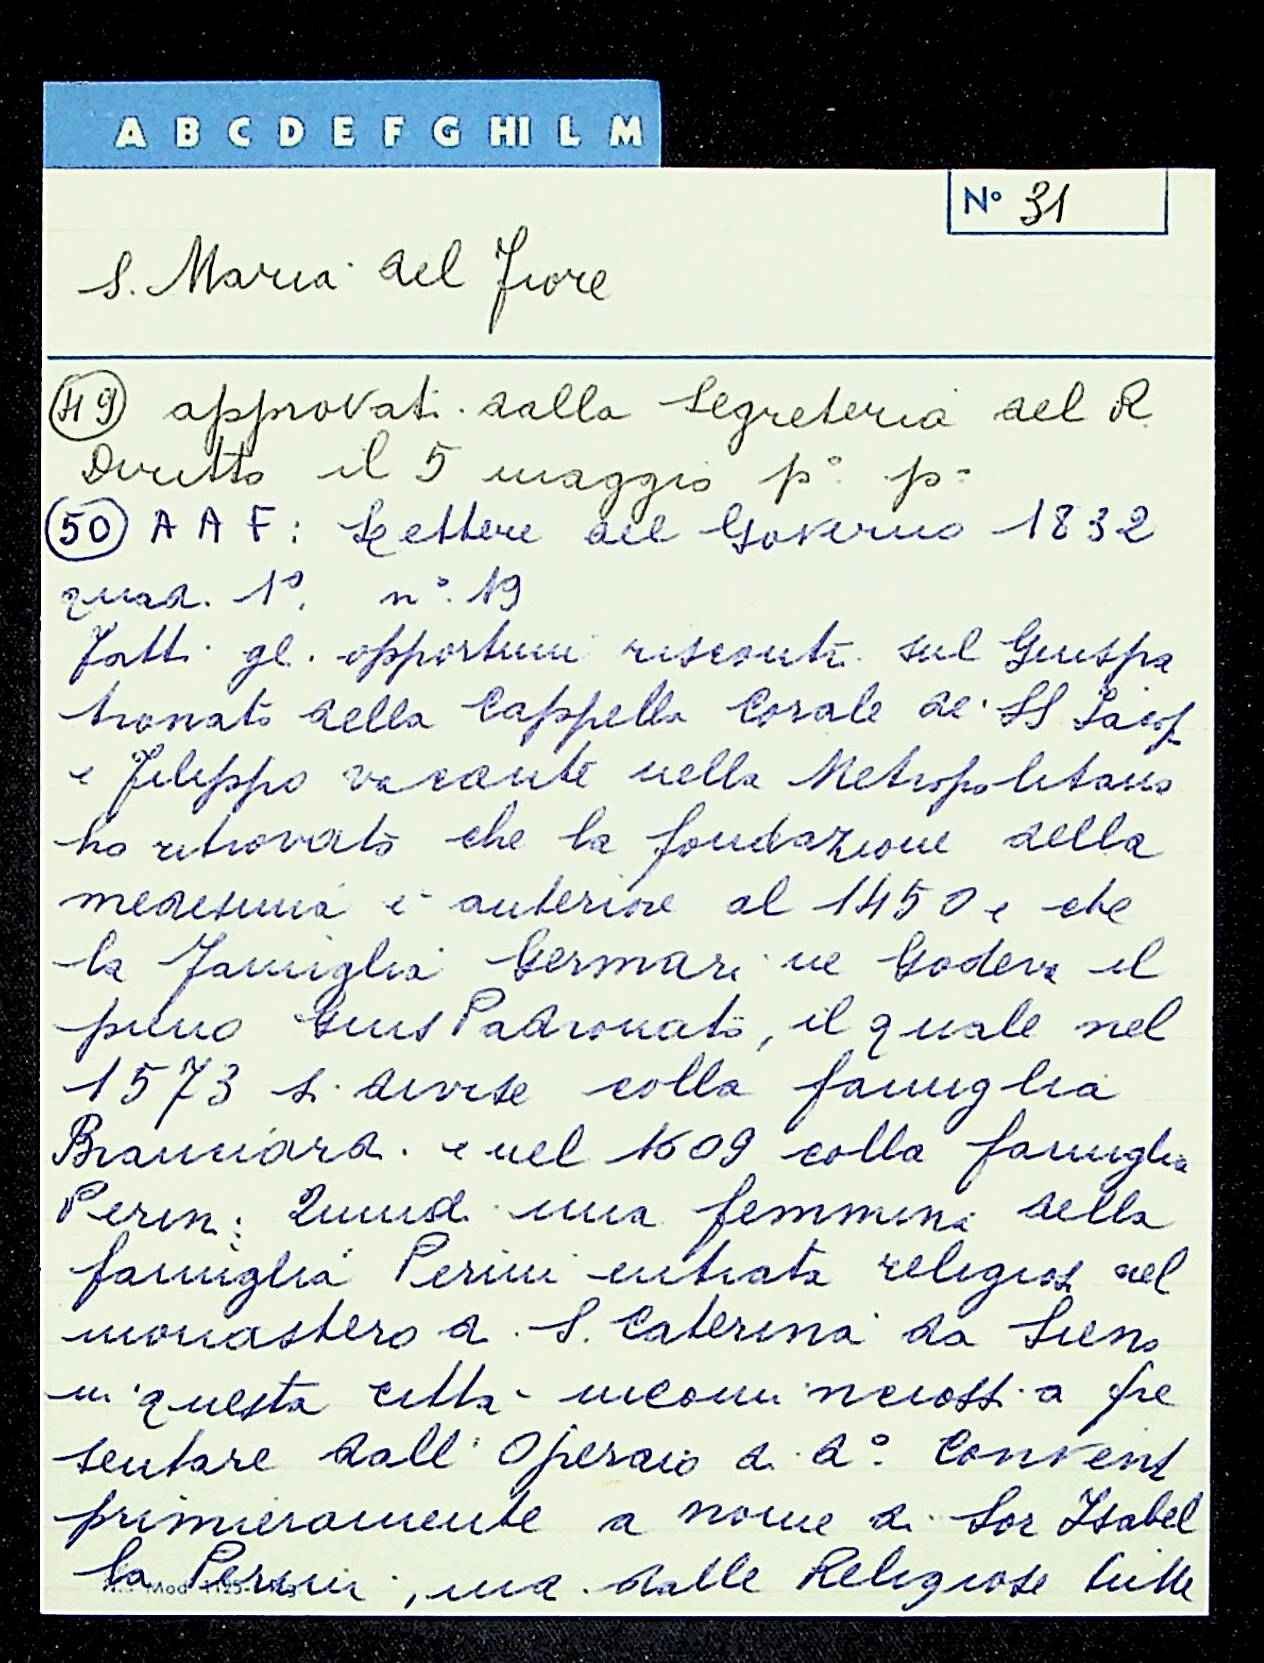 A B C D E F G HI L M
N° 31
S. Maria del Fiore
49 approvati dalla Segreteria del R.
Diritto il 5 maggio p° p°
50 A A F: Lettere del Governo 1832
quad. 1°. n°. 19
Fatti gli opportuni riscontri sul Giuspa
tronato della Cappella Corale de' SS Jacop
e Filippo vacante nella Metropolitana
ho ritrovato che la fondazione della
medesima è anteriore al 1450 e che
la famiglia Germari ne Godeva il
pieno GiusPadronato, il quale nel
1573 si divise colla famiglia
e nel 1609 colla famiglia
Perini: Quindi una femmina della
famiglia Perini entrata religiosa nel
monastero di S. Caterina da Siena
in questa città incominciossi a pre
sentare dall' Operaio di d°. Convent
primieramente a nome di Sor Isabel
la Perini, ma dalle Religiose tutte